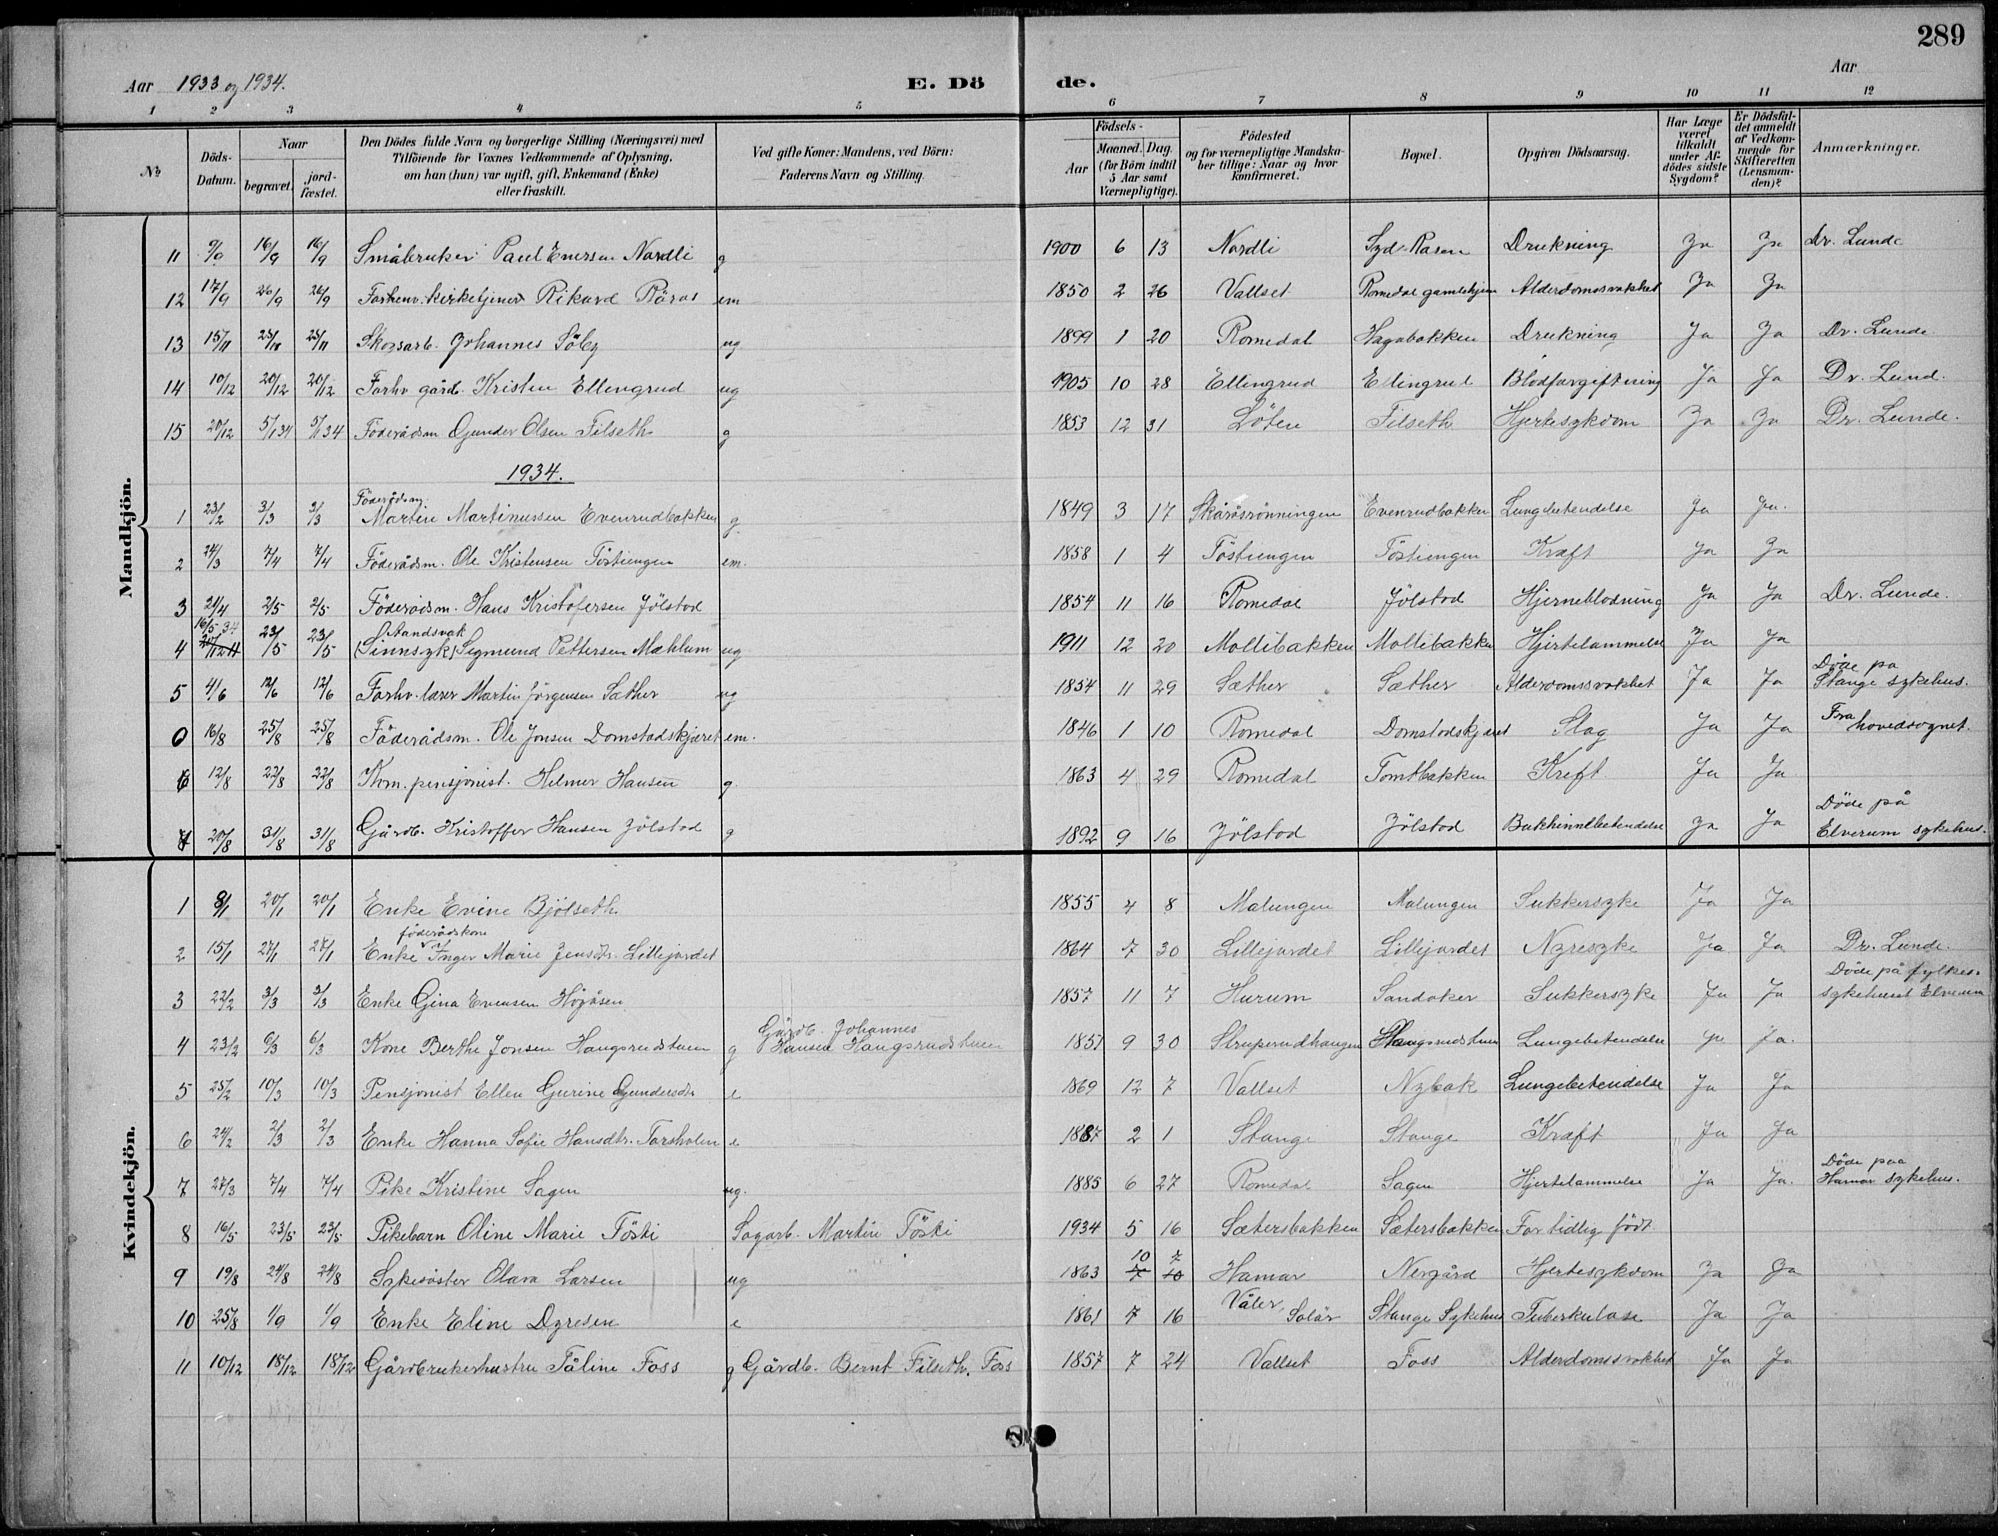 289
Aar 1933 og 1934. E. Dö de. Aar
1 2 3 4 5 6 7 8 9 10 11 12
No Döds-Datum. Naar begravet. jord-fæstet. Den Dödes fulde Navn og borgerlige Stilling (Næringsvei) med Tilföiende for Voxnes Vedkommende af Oplysning, om han (hun) var ugift, gift, Enkemand (Enke) eller fraskilt. Ved gifte Koner: Mandens, ved Börn: Faderens Navn og Stilling. Födsels- Aar Maaned. Dag. (for Börn indtil 5 Aar samt Værnepligtige). Födested og for værnepligtige Mandskaber tillige: Naar og hvor konfirmeret. Bopæl. Opgiven Dödsaarsag. Har Læge været tilkaldt under Afdödes sidste Sygdom? Er Dödsfaldet anmeldt af Vedkommende for Skifteretten (Lensmanden)? Anmærkninger.
Mandkjön.
11 16/9 16/9 Småbruker Paul Enersen Nordli g 1900 6 13 Nordli Syd-Rasen Drukning Ja Ja Dr. Lunde
12 17/9 26/9 26/9 Forhenv. kirketjener Rikard Röros em 1850 2 26 Vallset Romedal gamlehjem Alderdomssvakhet Ja Ja
13 15/11 25/11 25/11 Skogsarb. Johannes Söby ug 1899 1 20 Romedal Hagabakken Drukning Ja Ja Dr. Lunde.
14 10/12 20/12 20/12 Forhv gårdb. Kristen Ellengrud ug 1905 10 28 Ellengrud Ellingrud Blodforgiftning Ja Ja Dr. Lund.
15 20/12 5/1 34 5/1 34 Föderådsm Gunder Olsen Filseth g 1853 12 31 Löten Filseth Hjertesykdom Ja Ja Dr. Lunde.
1934.
1 23/2 3/3 3/3 Föderådsm. Martin Martinussen Evenrudbakken g. 1849 3 17 Skåråsrönningen Evenrudbakken Lungebetendelse Ja Ja.
2 24/3 7/4 7/4 Föderådsm. Ole Kristensen Töstiengen em. 1858 1 4 Töstiengen Töstiengen Kræft Ja Ja
3 21/4 2/5 2/5 Föderådsm. Hans Kristofersen Jölstad 1854 11 16 Romedal Jölstad Hjerneblodning Ja Ja Dr. Lunde.
4 16/5 34 23/5 23/5 Aandsvak (Sinnsyk) Sigmund Pettersen Mæhlum ug 1911 12 20 Mollibakken Mollibakken Hjertelammelse Ja Ja
5 4/6 12/6 12/6 Forhv. lærer Martin Jörgensen Sæther ug 1854 11 29 Sæther Sæther Alderdomssvakhet Ja Ja Döde på Stange sykehus.
0 16/8 25/8 25/8 Föderådsm. Ole Jonsen Domstadskjæret em. 1846 1 10 Romedal Domstadskjæret Slag Ja Ja Fra hovedsognet.
6 12/8 22/8 22/8 Kom. pensjonist. Helmer Hansen g. 1863 4 29 Romedal Tomtbakken Kreft Ja Ja
7 20/8 31/8 31/8 Gårdb. Kristoffer Hansen Jölstad g 1892 9 16 Jölstad Jölstad Bukhinnebetendelse Ja Ja Döde på Elverum sykehus.
Kvindekjön.
1 8/1 20/1 20/1 Enke Evine Bjölseth 1855 4 8 Malungen Malungen Sukkersyke Ja Ja
2 15/1 27/1 27/1 Enke föderådskone Inger Marie Jensdtr. Lillejordet 1864 7 30 Lillejordet Lillejordet Nyresyke Ja Ja Dr. Lunde.
3 22/2 3/3 3/3 Enke Gina Evensen Högåsen 1857 11 7 Hurum Sandaker Sukkersyke Ja Ja Döde på fylkessykehuset Elverum
4 23/2 6/3 6/3 Kone Berthe Jonsen Haugsrudstuen g Gårdb. Johannes Hansen Haugsrudstuen 1857 9 30 Struperudhaugen Haugsrudstuen Lungebetendelse Ja Ja.
5 25/2 10/3 10/3 Pensjonist Ellen Gurine Gundersdtr e 1869 12 7 Vallset Nybak Lungebetendelse Ja Ja
6 24/2 2/3 2/3 Enke Hanna Sofie Hansdtr. Torsholen e 1887 2 1 Stange Stange Kræft Ja Ja
7 27/3 7/4 7/4 Pike Kristine Sagen ug. 1885 6 27 Romedal Sagen Hjertelammelse Ja Ja. Döde paa Hamar sykehus.
8 16/5 23/5 23/5 Pikebarn Oline Marie Tösti Sagarb. Martin Tösti 1934 5 16 Sætersbakken Sætersbakken For tidlig födt
9 19/8 24/8 24/8 Sykesöster Olava Larsen ug 1863 10 7 7 10 Hamar Nergård Hjertesykdom Ja Ja
10 25/8 1/9 1/9 Enke Eline Dyresen e 1861 7 16 Våler, Solör Stange Sykehus Tuberkulose Ja Ja
11 10/12 18/12 18/12 Gårdbrukerhustru Tåline Foss g Gårdb. Bernt Filseth. Foss 1857 7 24 Vallset Foss Alderdomssvakhet Ja Ja